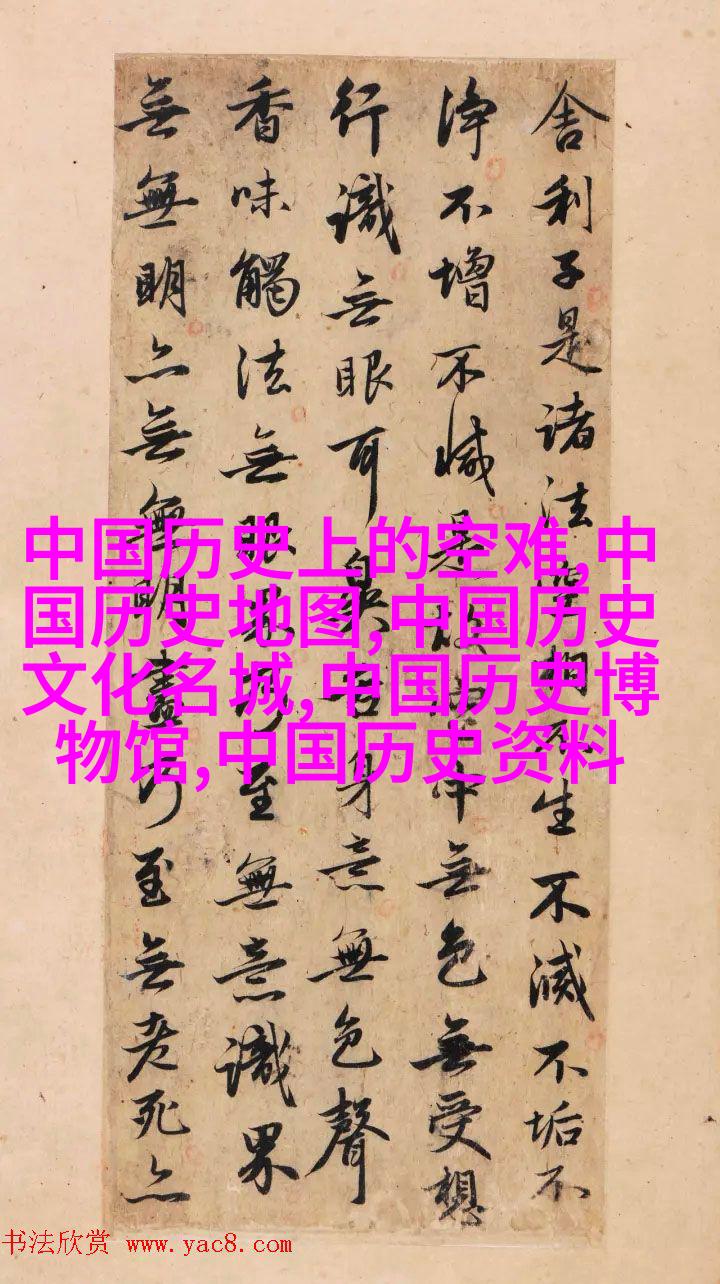 舍利子是諸法空相不生不滅不垢不
淨不增不減是故空中無色無受想
行識無眼耳鼻舌身意無色聲
香味觸法無眼界乃至無意識界
無無明亦無無明盡乃至無老死亦
中国历史上的空难,中
国历史地图,中国历史
文化名城,中国历史博
物馆,中国历史资料
书法欣赏 www.yac8.com